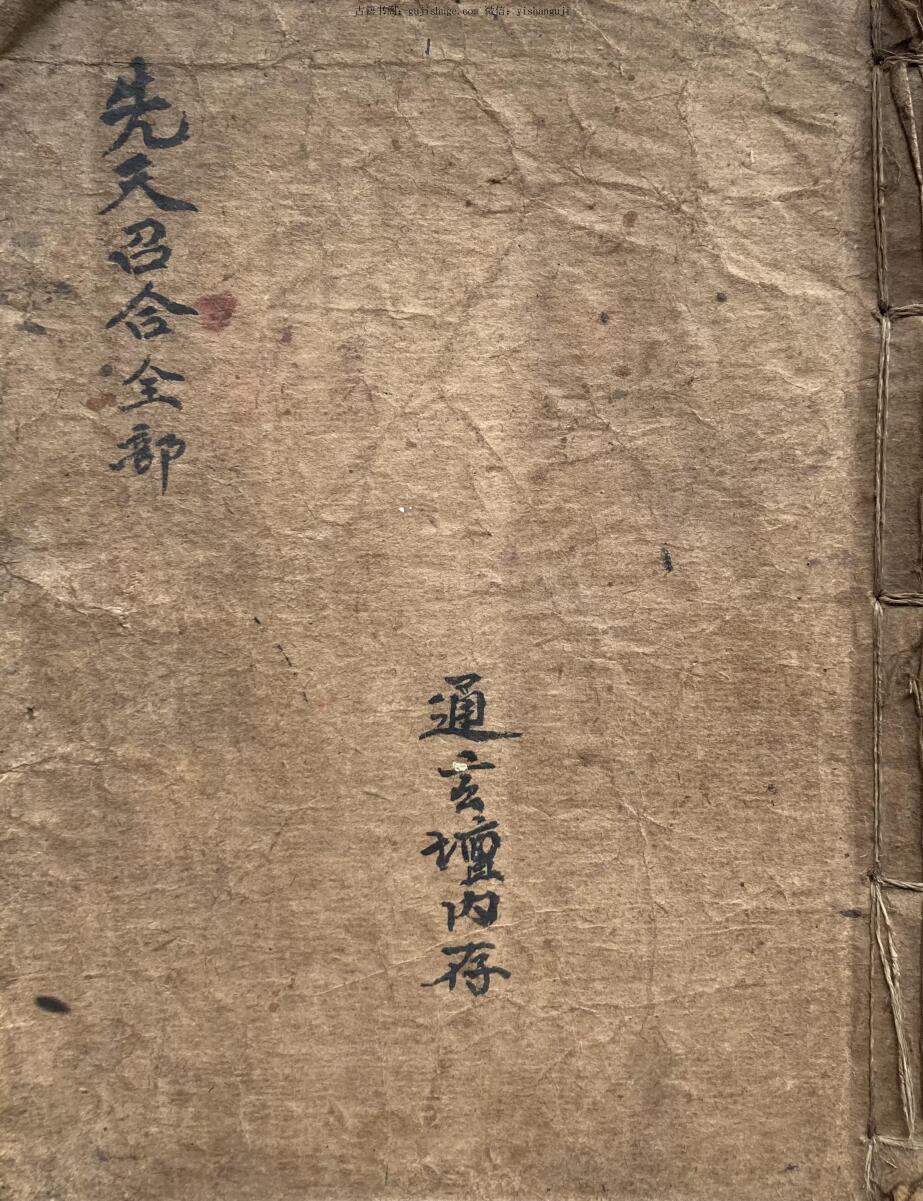 古籍书阁：gujishuge.com 微信：yishanguji
先天召合全部
通玄壇内存